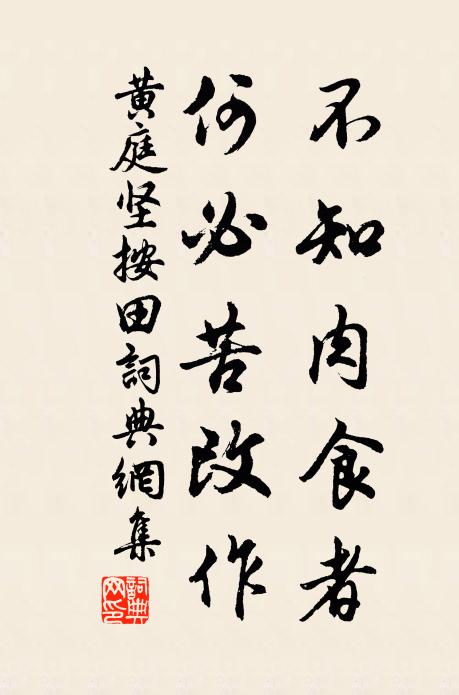 不知肉食者
何必苦改作
黄庭坚按田詞典網集
詞典網印